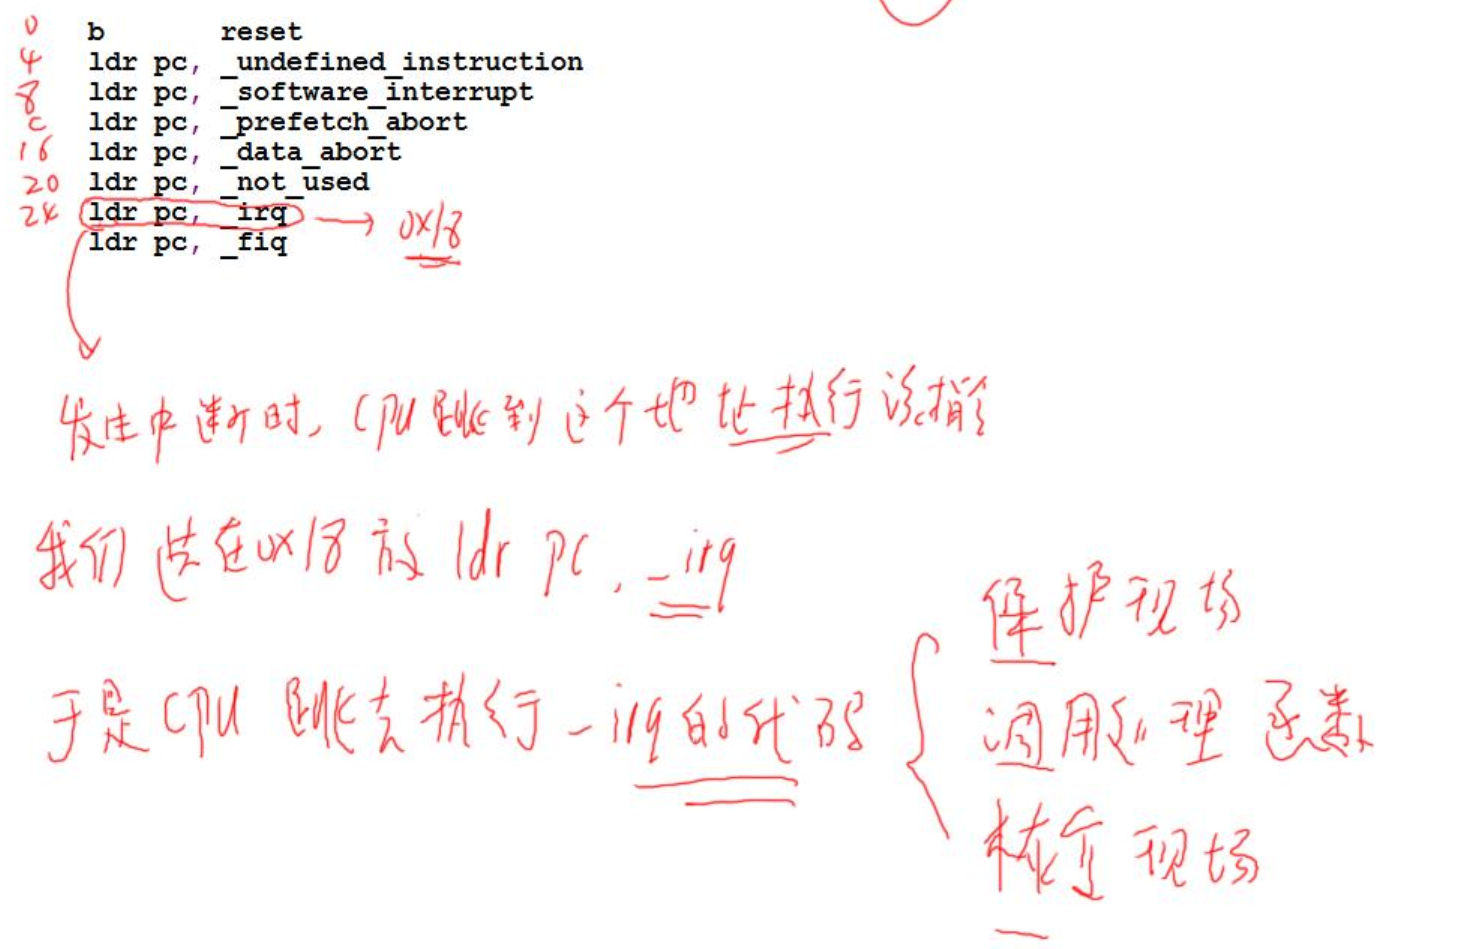 0 b reset
4 ldr pc, _undefined_instruction
8 ldr pc, _software_interrupt
c ldr pc, _prefetch_abort
16 ldr pc, _data_abort
20 ldr pc, _not_used
24 ldr pc, _irq → 0x18
ldr pc, _fiq
发生中断时, CPU跳到这个地址执行该指令
我们先在0x18放 ldr pc, _irq
于是CPU跳去执行_irq的代码
保护现场
调用处理函数
恢复现场